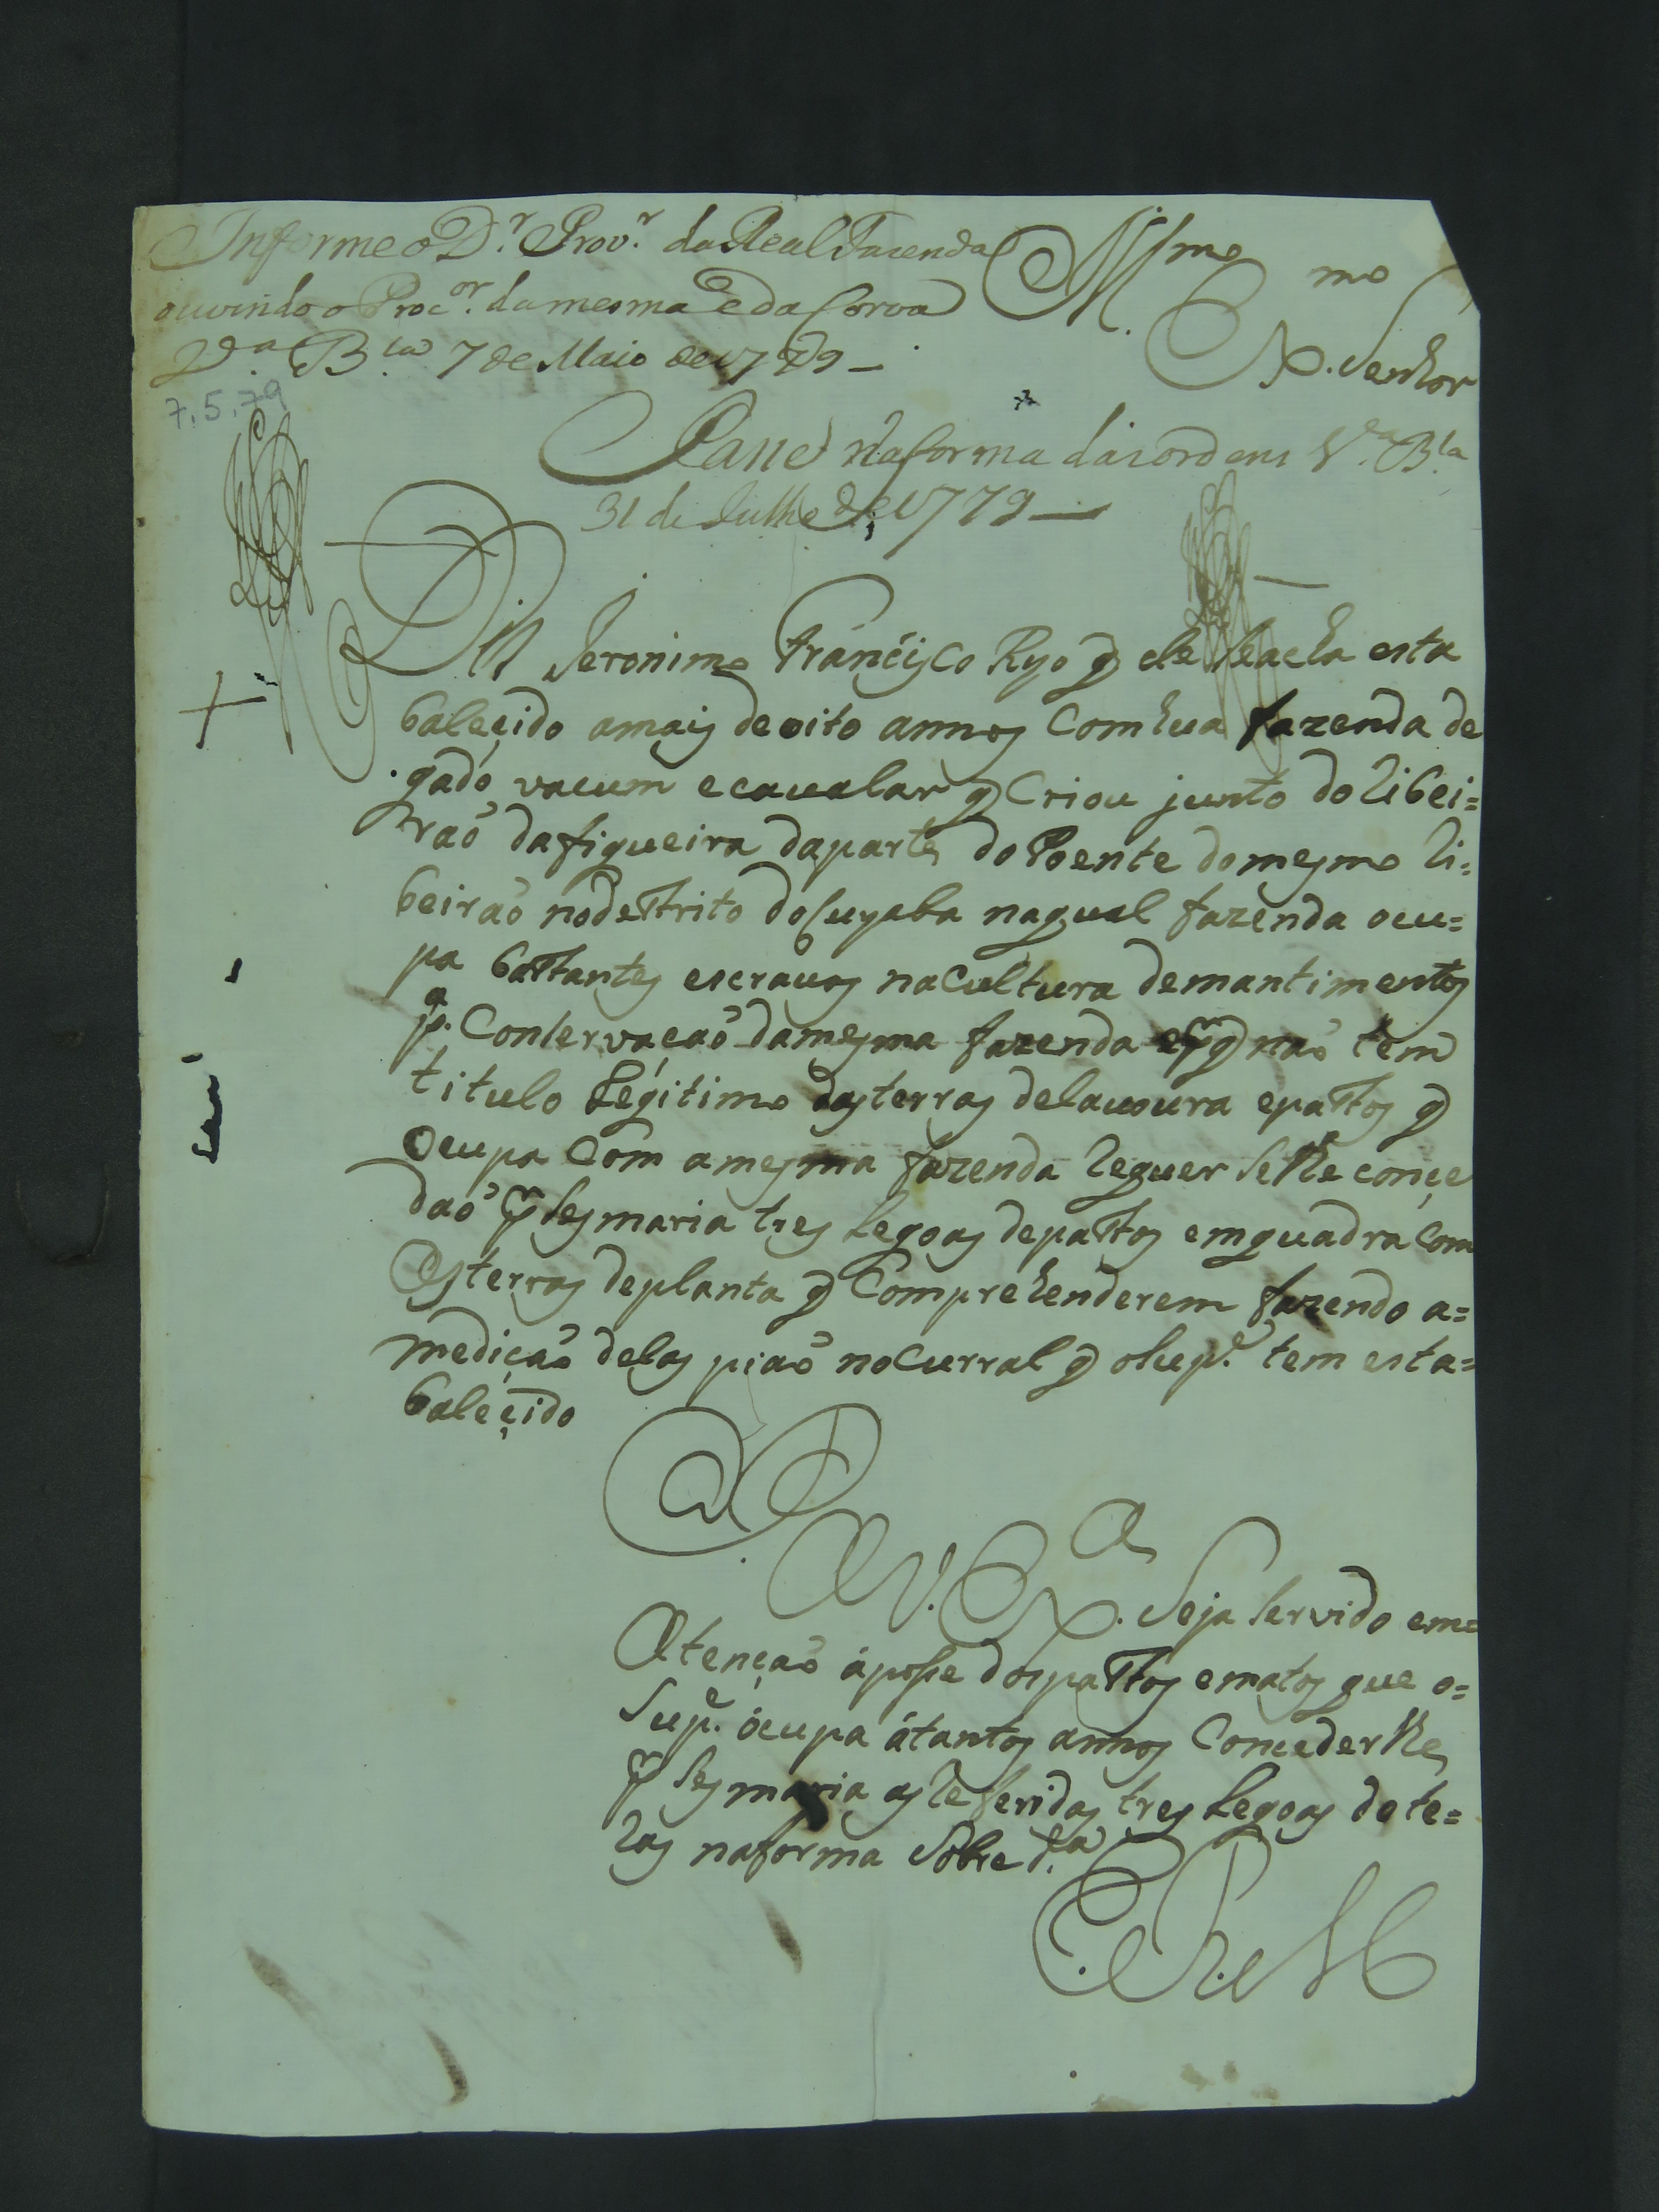 Informe o D.r Prov.r da Real Fazenda
ouvindo o Proc.or da mesma e da Coroa
V.a B.la 7 de Maio de 1779 —
7.5.79
Ill.mo
Ex.mo Senhor
Passe na forma das ordens V.a B.la
31 de Julho de 1779 —
Diz Jeronimo Francisco Rgo q̃ ele Se acha esta
balecido amais de oito annos Com hua fazenda de
gado vacum e cavalar q̃ Criou junto do Ribei=
raõ da figueira da parte do Poente do mesmo Ri=
beiraõ no destrito do Cuyaba na qual fazenda ocu=
pa bastantes escravos na Cultura de mantimentos
p.a Conservaçaõ da mesma fazenda e pr q̃ naõ tem
titulo Legitimo das terras de lavoura e pastos q̃
Ocupa Com a mesma fazenda Requer Se lhe conçe
daõ pr Sesmaria tres Legoas de pastos em quadra Com
As terras de planta q̃ Comprehenderem fazendo a=
mediçaõ delas piaõ no Curral q̃ o Sup.e tem esta=
baleçido
P
A V. Ex.a Seja Servido em=
Atençaõ á posse dos pastos e matos que o=
Sup.e ócupa á tantos annos Conceder lhe
pr Sesmaria as Referidas tres Legoas de te=
ras na forma Sobre d.a
E. R. M